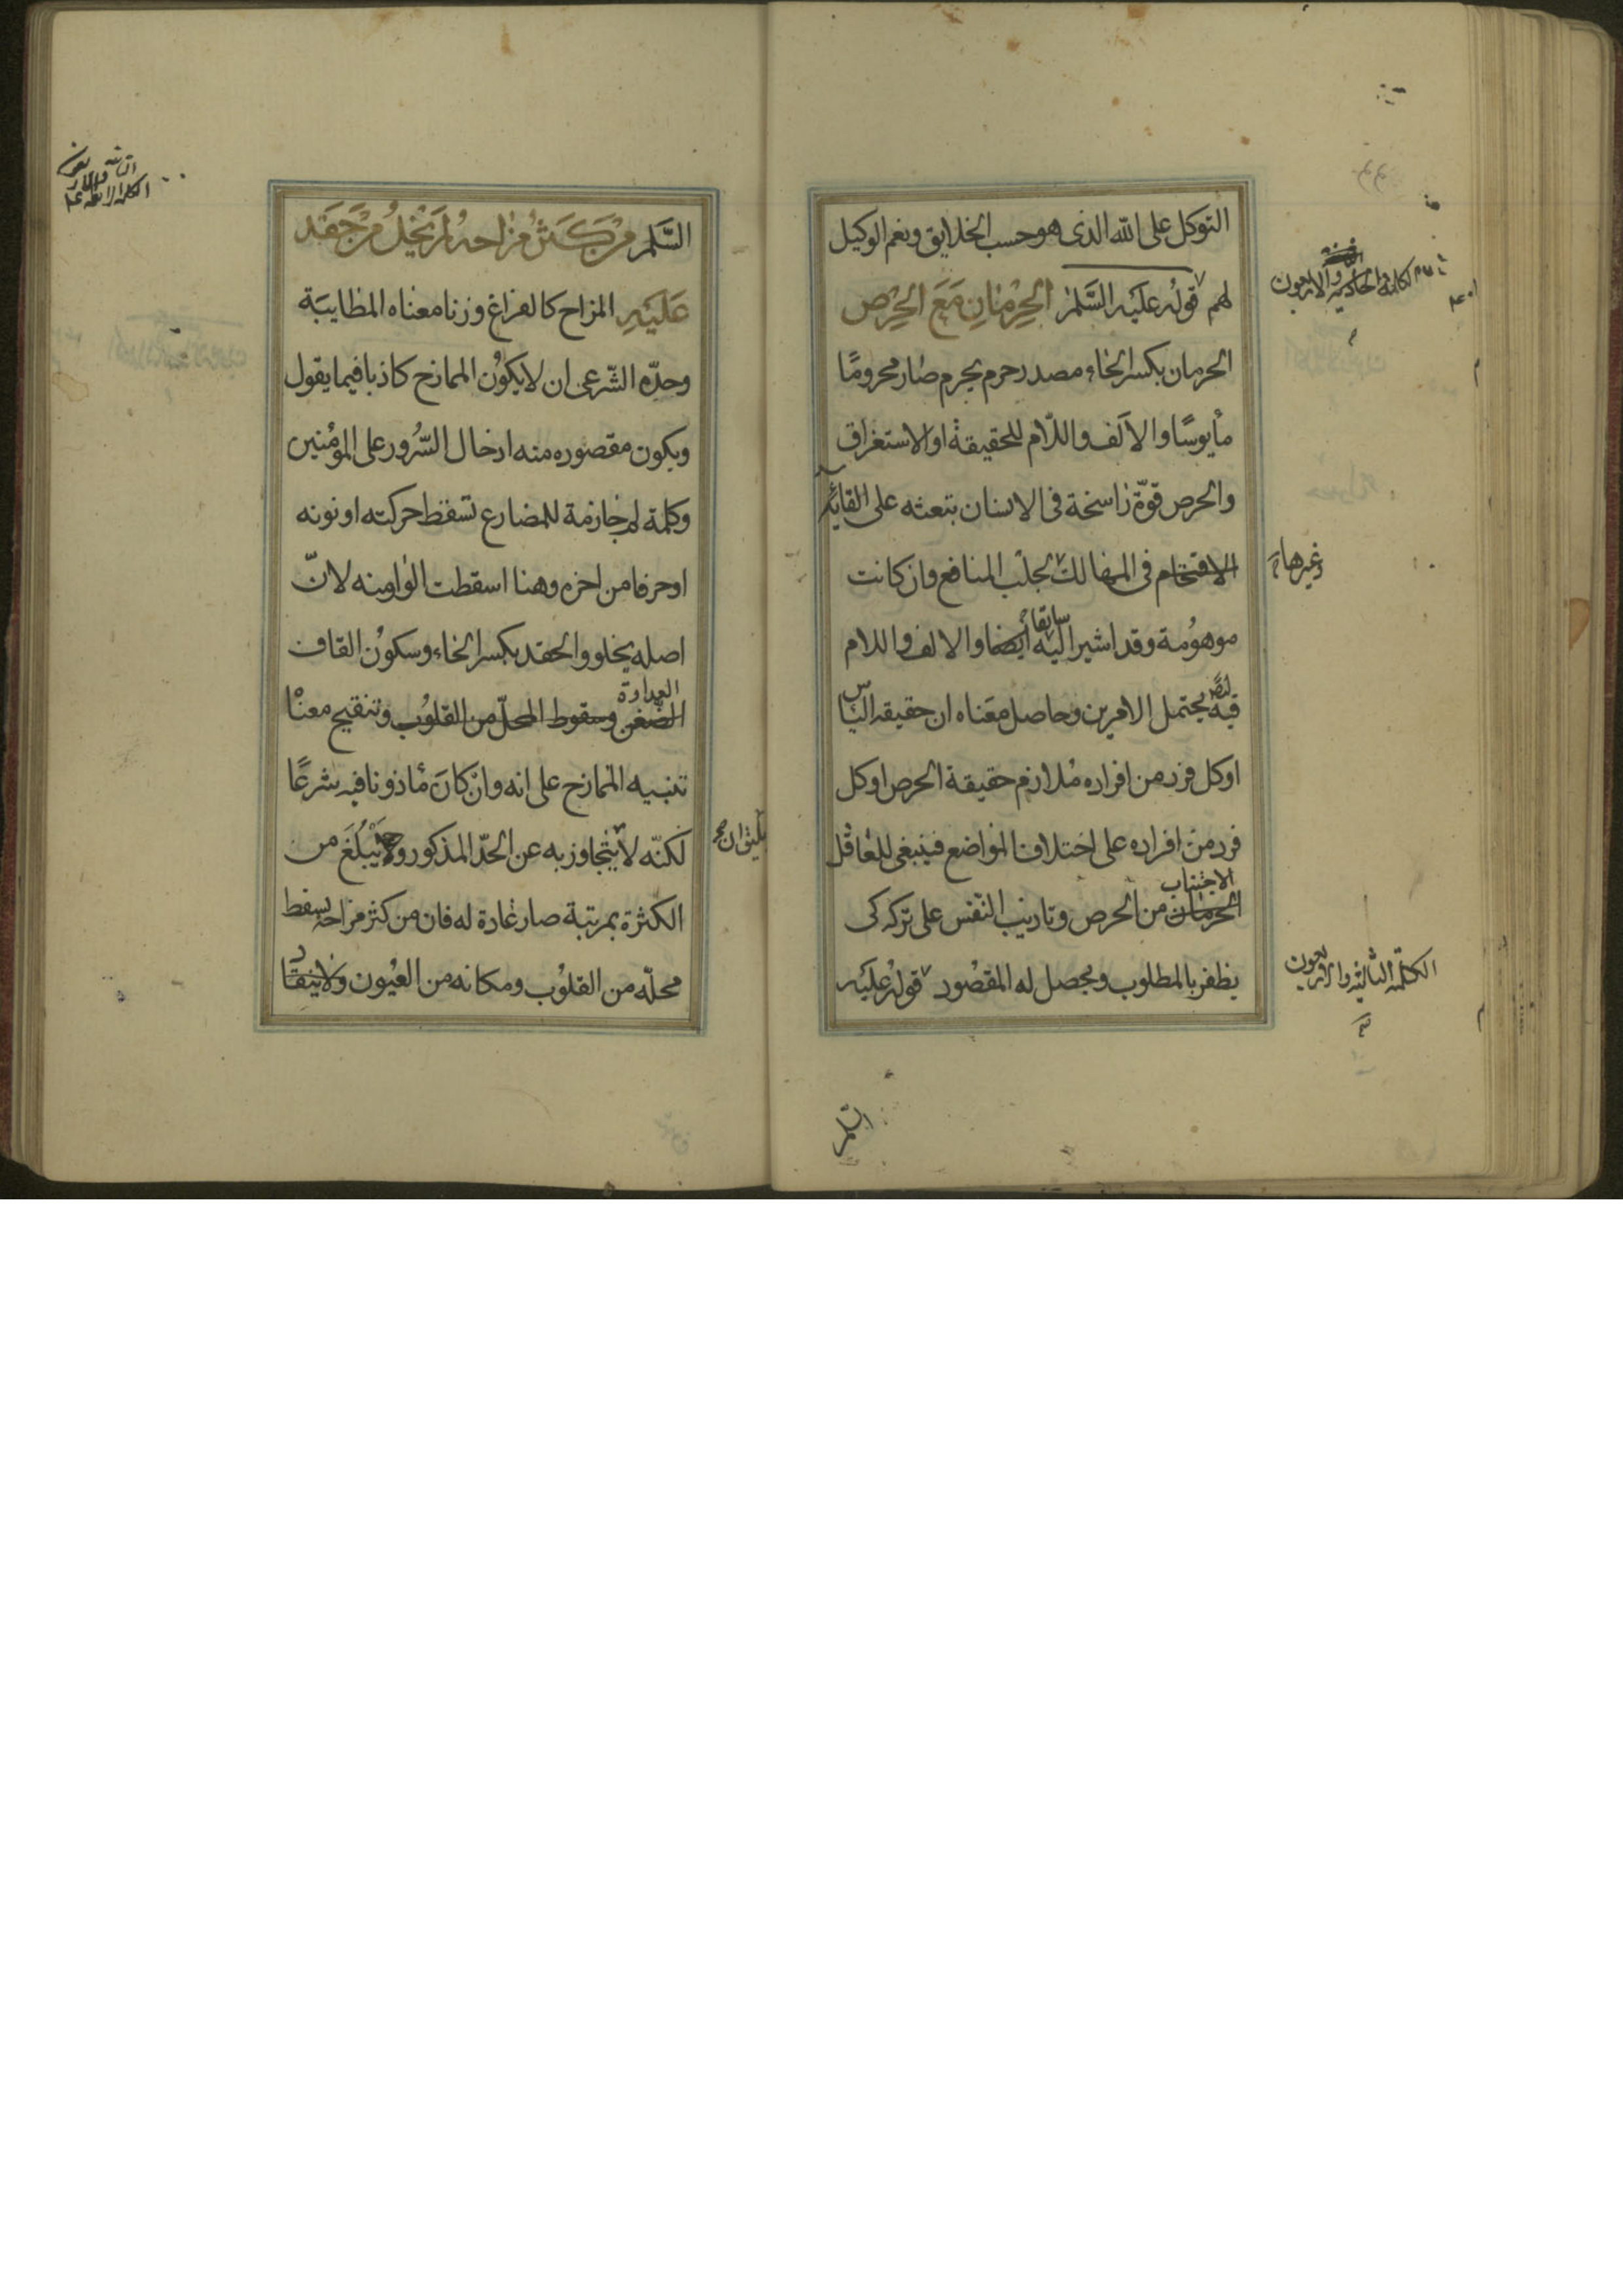 التوكل على الله الذى هو حسب الخلايق ونعم الوكيل
لهم قوله عليه السلم الحرمان مع الحرص
الحرمان بكسر الحاء مصدر حرم يحرم صار محرومًا
مأيوسًا والالف واللّام للحقيقة او الاستغراق
والحرص قوّة راسخة فى الانسان بتعثه على القاء
وغيرها
الاقتحام فى المهالك لجلب المنافع وان كانت
سابقا
موهومة وقد اشير اليه ايضا والالف واللام
فيه يحتمل الامرين وحاصل معناه ان حقيقه الناس
او كل فرد من افراده ملازم حقيقة الحرص او كل
فرد من افراده على اختلاف المواضع فينبغى للعاقل
الاجتناب
الحرمان من الحرص وتاديب النفس على تركه كى
يظفر بالمطلوب ويحصل له المقصود قوله عليه
الكلمة الحادية والاربعون
الكلمة الثانية والاربعون
السلم
السّلم من كثر مزاحه لم يخل من حقد
عليه المزاح كالفراغ وزنا معناه المطايبة
وحدّه الشّرعى ان لا يكون الممازح كاذبا فيما يقول
ويكون مقصوده منه ادخال السّرور على المؤمنين
وكلمة لم جازمة للمضارع تسقط حركته او نونه
او حرفا من اخره وهنا اسقطت الواو منه لانّ
اصله يخلو والحقد بكسر الحاء وسكون القاف
العداوة
الضّغن وسقوط المحلّ من القلوب وتنقيح معناه
تنبيه الممازح على انه وان كان مأذونا فيه شرعًا
يليق ان
لكنّه لا يتجاوز به عن الحدّ المذكور ولا يبلغ من
الكثرة بمرتبة صار عادة له فان من كثر مزاحه يسقط
محلّه من القلوب ومكانه من العيون ولا